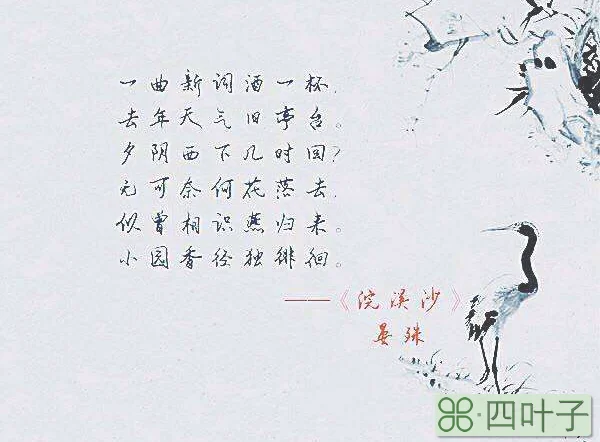 一曲新词酒一杯,
去年天气旧亭台。
夕阴西下几时回?
无可奈何花落去,
似曾相识燕归来。
小园香径独徘徊。
——《浣溪沙》
晏殊
四叶子